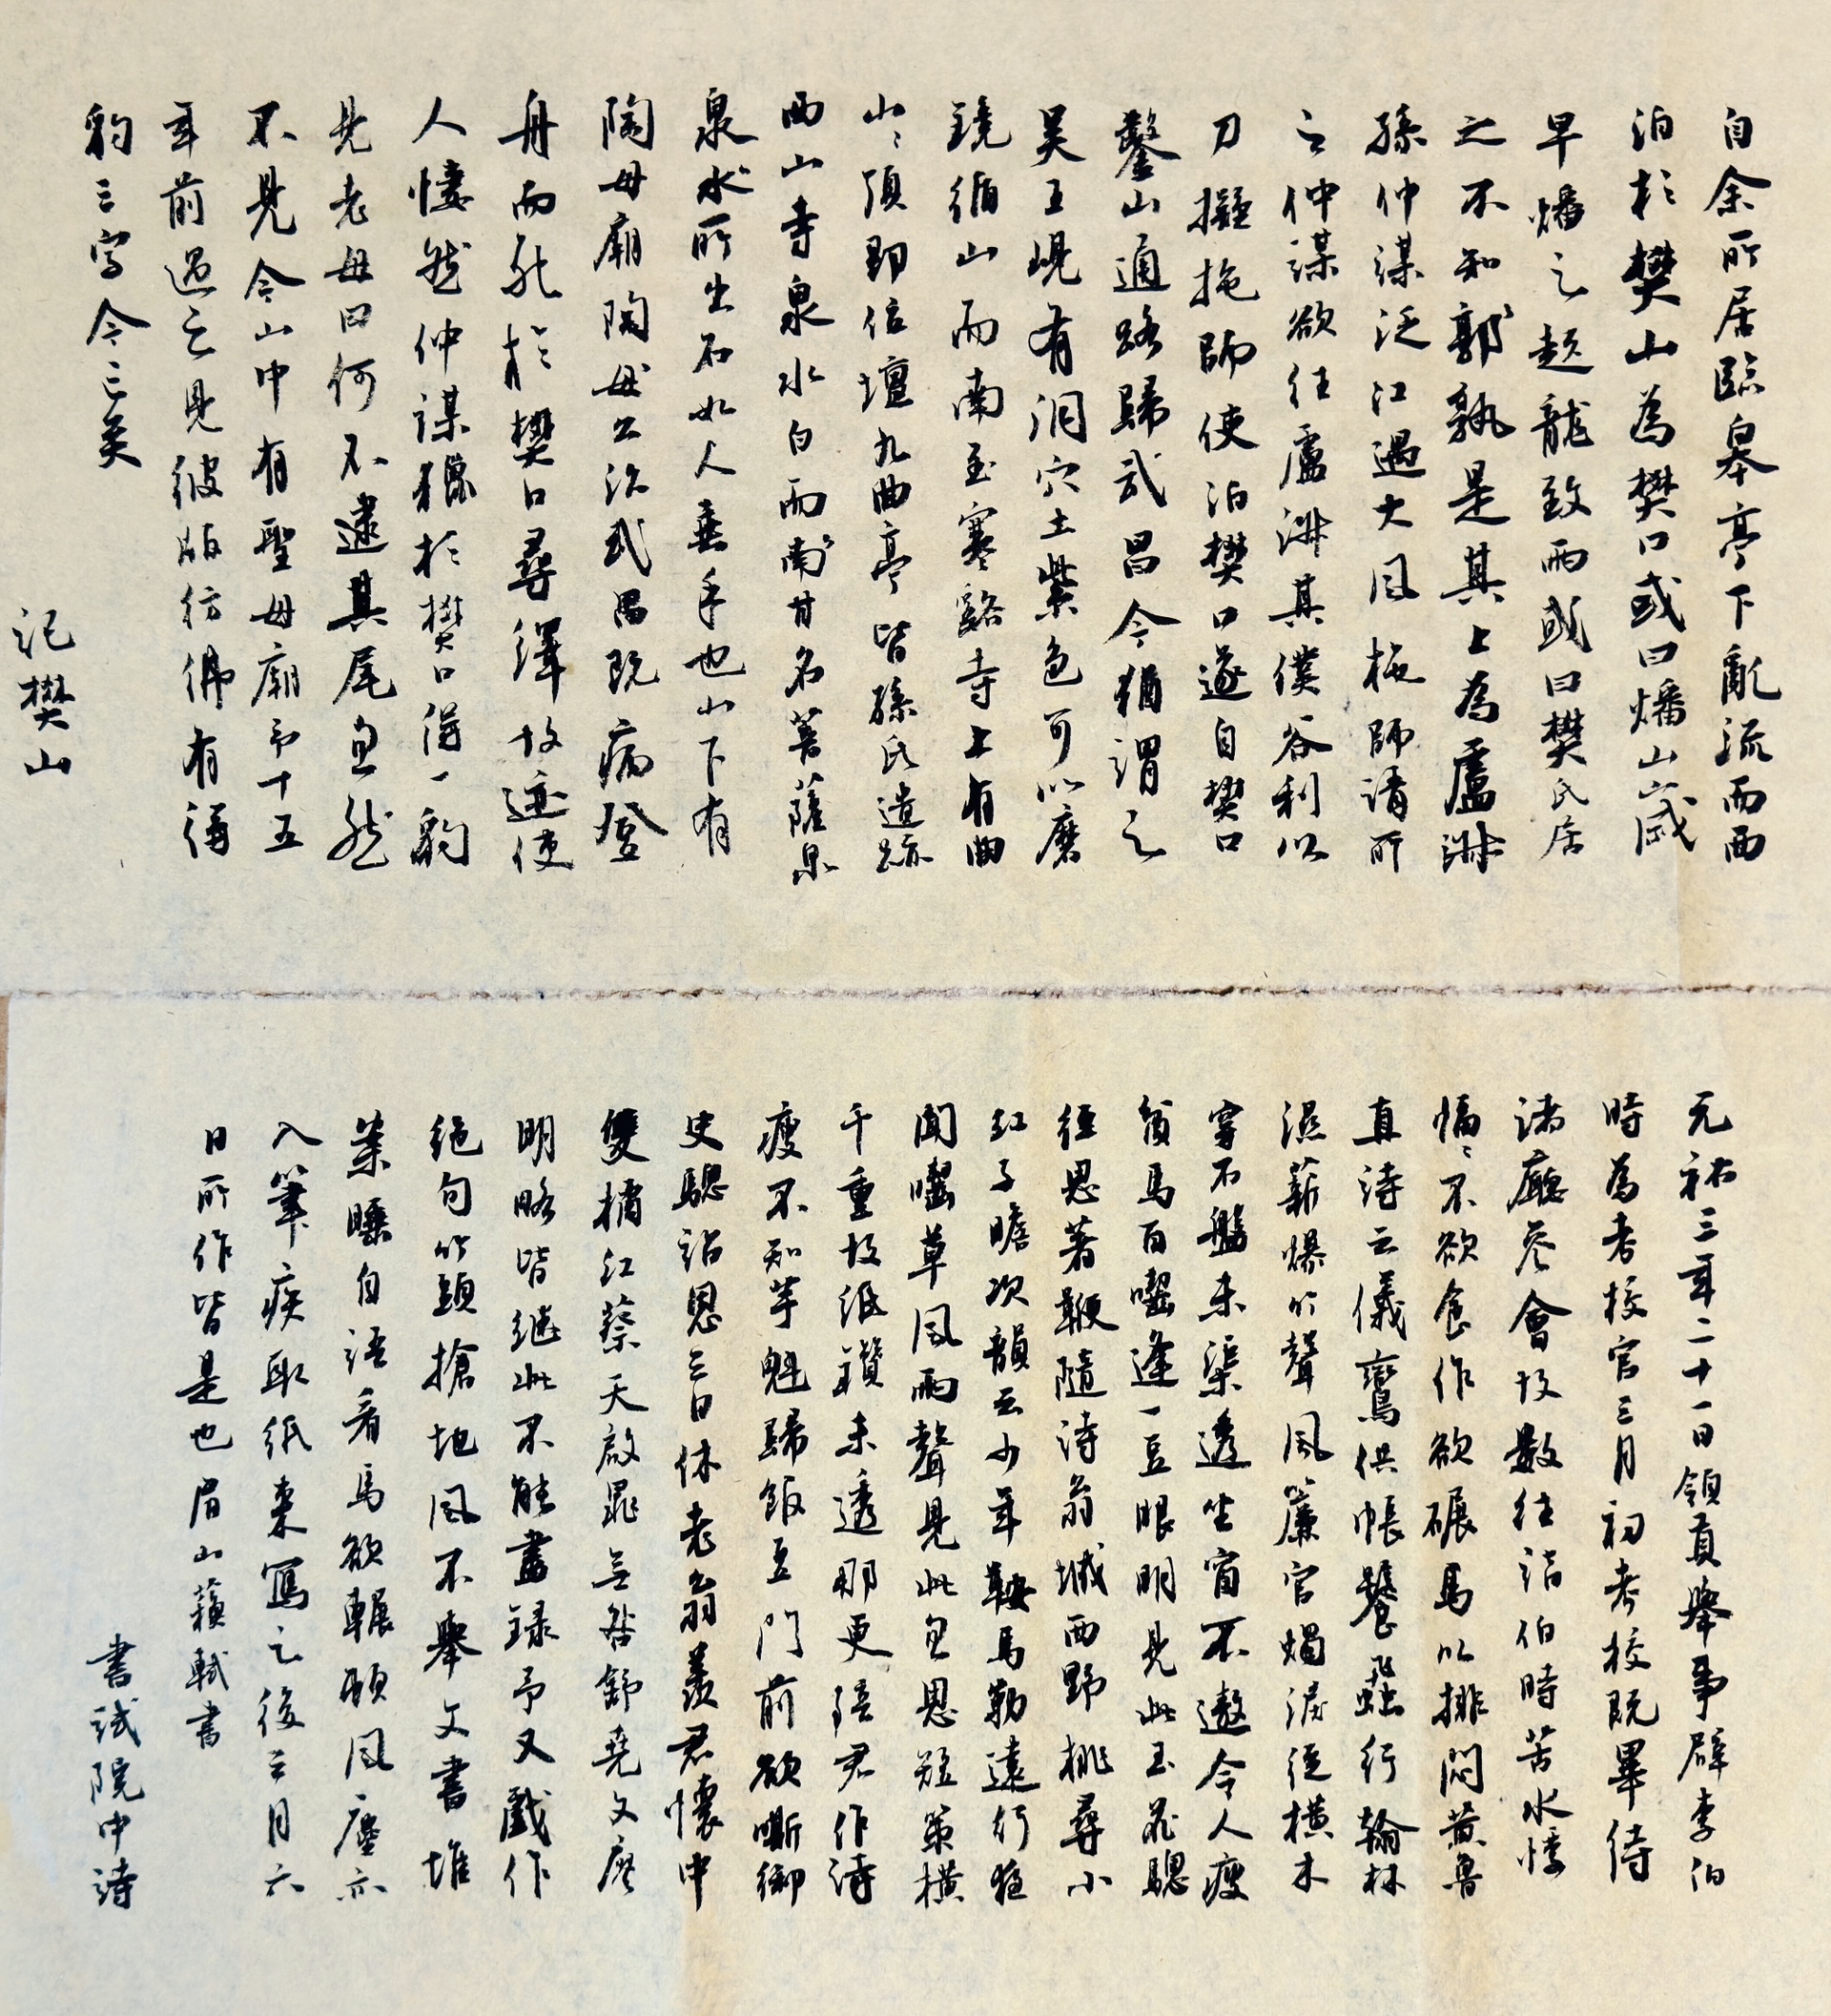 自余所居臨皋亭下亂流而西
泊於樊山為樊口或曰燔山歲
早燔之起龍致雨或曰樊氏居
之不知郭孰是其上為盧洲
孫仲謀泛江遇大風柂師請所
之仲謀欲往盧洲其僕谷利以
刀擬拖師使泊樊口遂自樊口
鑿山通路歸武昌今猶謂之
吳王峴有洞穴土紫色可以磨
鏡循山而南至寒谿寺上有曲
山〻頂即位壇九曲亭皆孫氏遺跡
西山寺泉水白而南甘名菩薩泉
泉水所出石如人垂手也山下有
陶母廟陶母公治武昌既病登
舟而死於樊口尋繹故迹使
人悽然仲謀獵於樊口得一豹
見老母曰何不逮其尾忽然
不見今山中有聖母廟予十五
年前過之見彼版彷彿有得
豹三字今亡矣
記樊山
元祐三年二十一日領貢舉事辟李伯
時為考校官三月初考校既畢待
諸廳參會故數往詣伯時苦水悸
愊〻不欲食作欲碾馬以排悶黃魯
直詩云儀鸞供帳饕蝨行翰林
濕薪爆竹聲風簾官燭淚縱橫木
穿石盤未渠透坐窗不遨令人瘦
貧馬百囓逢一豆眼明見此玉花驄
徑思著鞭隨詩翁城西野桃尋小
紅子瞻次韻云少年鞍馬勒遠行臥
聞囓草風雨聲見此忽思短策橫
千重故紙鑽未透那更陪君作詩
瘦不知芋魁歸飯豆門前欲嘶御
史驄詔恩三日休老翁羨君懷中
雙橘紅蔡天啟晁無咎舒堯文廖
明略皆繼此不能盡録予又戲作
絕句竹頭搶地風不舉文書堆
案睡自語看馬欲輾頓風塵亦
入筆疾取紙來寫之後三月六
日所作皆是也眉山蘇軾書
書試院中詩